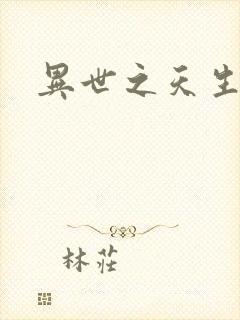 異世之天生
林莊